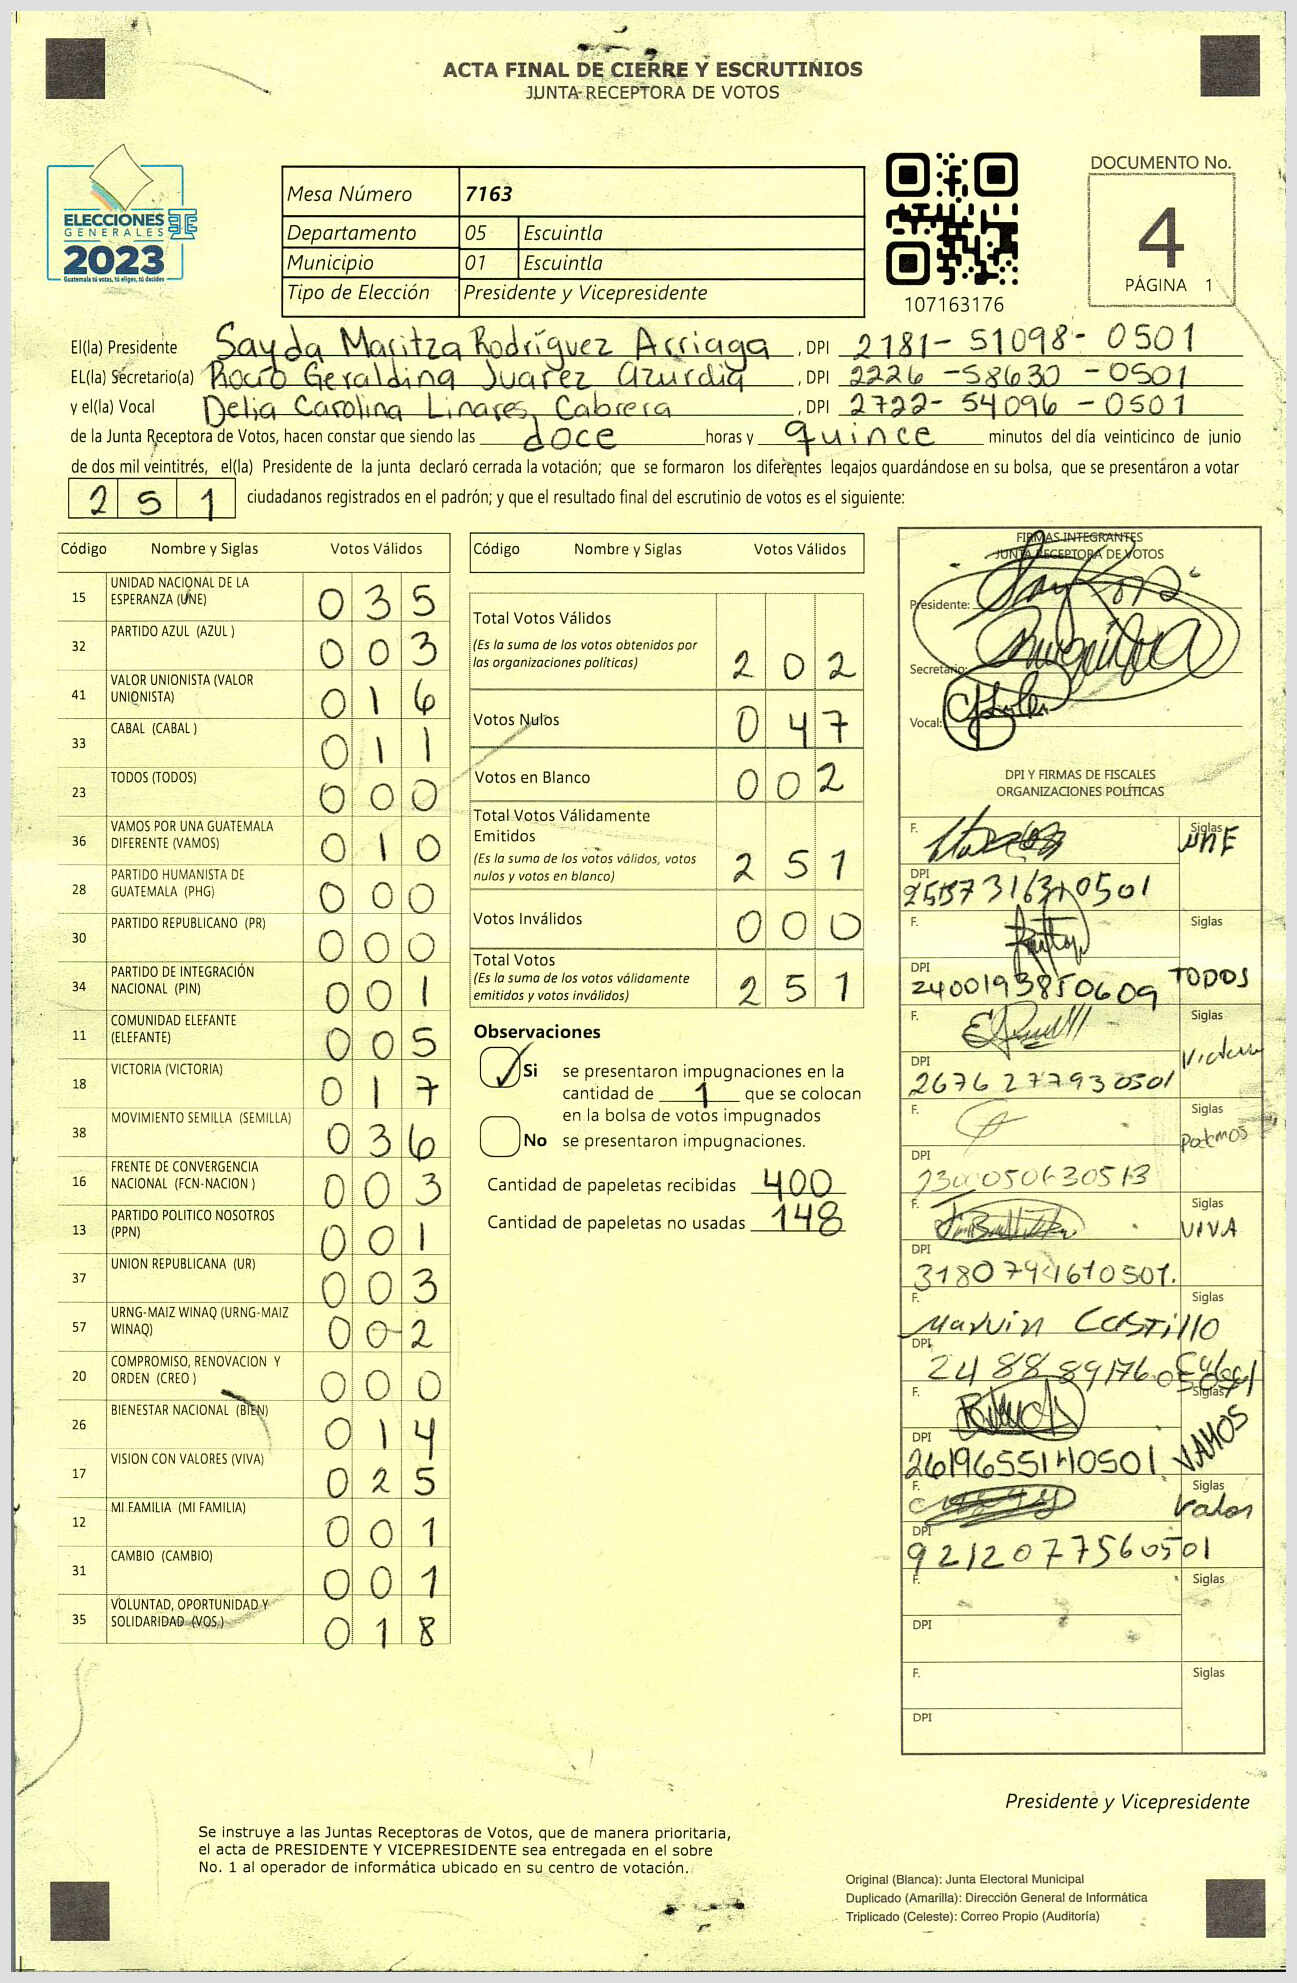 ACTA FINAL DE CIERRE Y ESCRUTINIOS
JUNTA RECEPTORA DE VOTOS
ELECCIONES
GENERALES
2023
Guatemala tú votas, tú eliges, tú decides
Mesa Número 7163
Departamento 05 Escuintla
Municipio 01 Escuintla
Tipo de Elección Presidente y Vicepresidente
107163176
DOCUMENTO No.
4
PÁGINA 1
El(la) Presidente Sayda Maritza Rodríguez Arriaga, DPI 2181-51098-0501
EL(la) Secretario(a) Rocío Geraldina Juarez Azurdia, DPI 2226-58630-0501
y el(la) Vocal Delia Carolina Linares Cabrera, DPI 2722-54096-0501
de la Junta Receptora de Votos, hacen constar que siendo las doce horas y quince minutos del día veinticinco de junio
de dos mil veintitrés, el(la) Presidente de la junta declaró cerrada la votación; que se formaron los diferentes legajos guardándose en su bolsa, que se presentáron a votar
251 ciudadanos registrados en el padrón; y que el resultado final del escrutinio de votos es el siguiente:
Código Nombre y Siglas Votos Válidos
15 UNIDAD NACIONAL DE LA ESPERANZA (UNE) 035
32 PARTIDO AZUL (AZUL ) 003
41 VALOR UNIONISTA (VALOR UNIONISTA) 016
33 CABAL (CABAL ) 011
23 TODOS (TODOS) 000
36 VAMOS POR UNA GUATEMALA DIFERENTE (VAMOS) 010
28 PARTIDO HUMANISTA DE GUATEMALA (PHG) 000
30 PARTIDO REPUBLICANO (PR) 000
34 PARTIDO DE INTEGRACIÓN NACIONAL (PIN) 001
11 COMUNIDAD ELEFANTE (ELEFANTE) 005
18 VICTORIA (VICTORIA) 017
38 MOVIMIENTO SEMILLA (SEMILLA) 036
16 FRENTE DE CONVERGENCIA NACIONAL (FCN-NACION ) 003
13 PARTIDO POLITICO NOSOTROS (PPN) 001
37 UNION REPUBLICANA (UR) 003
57 URNG-MAIZ WINAQ (URNG-MAIZ WINAQ) 002
20 COMPROMISO, RENOVACION Y ORDEN (CREO ) 000
26 BIENESTAR NACIONAL (BIEN) 014
17 VISION CON VALORES (VIVA) 025
12 MI FAMILIA (MI FAMILIA) 001
31 CAMBIO (CAMBIO) 001
35 VOLUNTAD, OPORTUNIDAD Y SOLIDARIDAD (VOS ) 018
Código Nombre y Siglas Votos Válidos
Total Votos Válidos
(Es la suma de los votos obtenidos por
las organizaciones políticas) 202
Votos Nulos 047
Votos en Blanco 002
Total Votos Válidamente
Emitidos
(Es la suma de los votos válidos, votos
nulos y votos en blanco) 251
Votos Inválidos 000
Total Votos
(Es la suma de los votos válidamente
emitidos y votos inválidos) 251
Observaciones
Si se presentaron impugnaciones en la
cantidad de 1 que se colocan
en la bolsa de votos impugnados
No se presentaron impugnaciones.
Cantidad de papeletas recibidas 400
Cantidad de papeletas no usadas 148
FIRMAS INTEGRANTES
JUNTA RECEPTORA DE VOTOS
Presidente:
Secretario:
Vocal:
DPI Y FIRMAS DE FISCALES
ORGANIZACIONES POLÍTICAS
F. Siglas UNE
DPI
F. Siglas TODOS
DPI 2400193850609
F. Siglas Victoria
DPI 2676277930501
F. Siglas
DPI
F. Siglas VIVA
DPI
F. Marvin Castillo Siglas
DPI
F. Siglas VAMOS
DPI 2619655140501
F. Siglas Valor
DPI 9212077560501
F. Siglas
DPI
F. Siglas
DPI
Presidente y Vicepresidente
Se instruye a las Juntas Receptoras de Votos, que de manera prioritaria,
el acta de PRESIDENTE Y VICEPRESIDENTE sea entregada en el sobre
No. 1 al operador de informática ubicado en su centro de votación.
Original (Blanca): Junta Electoral Municipal
Duplicado (Amarilla): Dirección General de Informática
Triplicado (Celeste): Correo Propio (Auditoría)